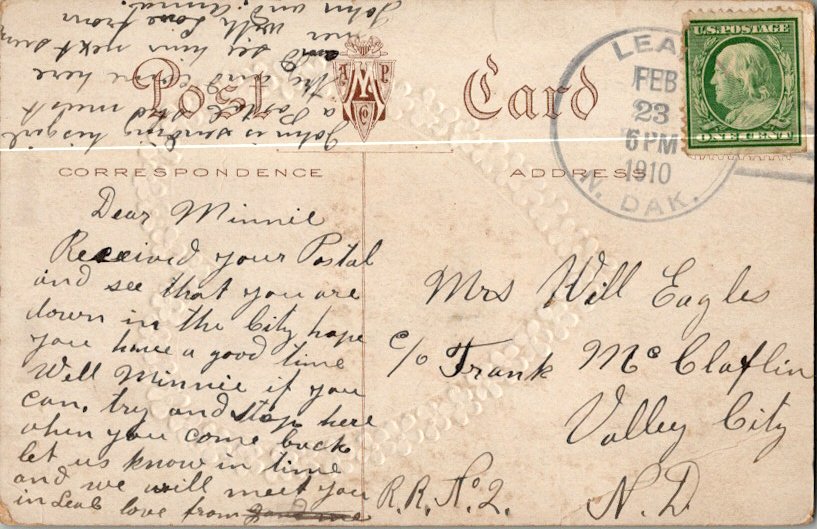 Post Card
A M P
CO
CORRESPONDENCE
ADDRESS
U.S. POSTAGE
ONE CENT
LEAL
FEB
23
6 PM
1910
N. DAK.
Dear Minnie
Received your Postal
and see that you are
down in the City hope
you have a good time
Well Minnie if you
can, try and stop here
when you come back
let us know in time
and we will meet you
in Leal love from
John is sending his girl
a Postal and must
and come here
to see him next
with Love from
John and Anna
Mrs Will Eagles
c/o Frank McClaflin
Valley City
R.R. No 2. N.D.